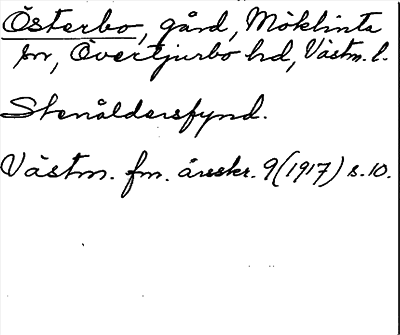 Österbo, gård, Möklinta
sn, Övertjurbo hd, Västm. l.
Stenåldersfynd.
Västm. fm. årsskr. 9 (1917) s. 10.